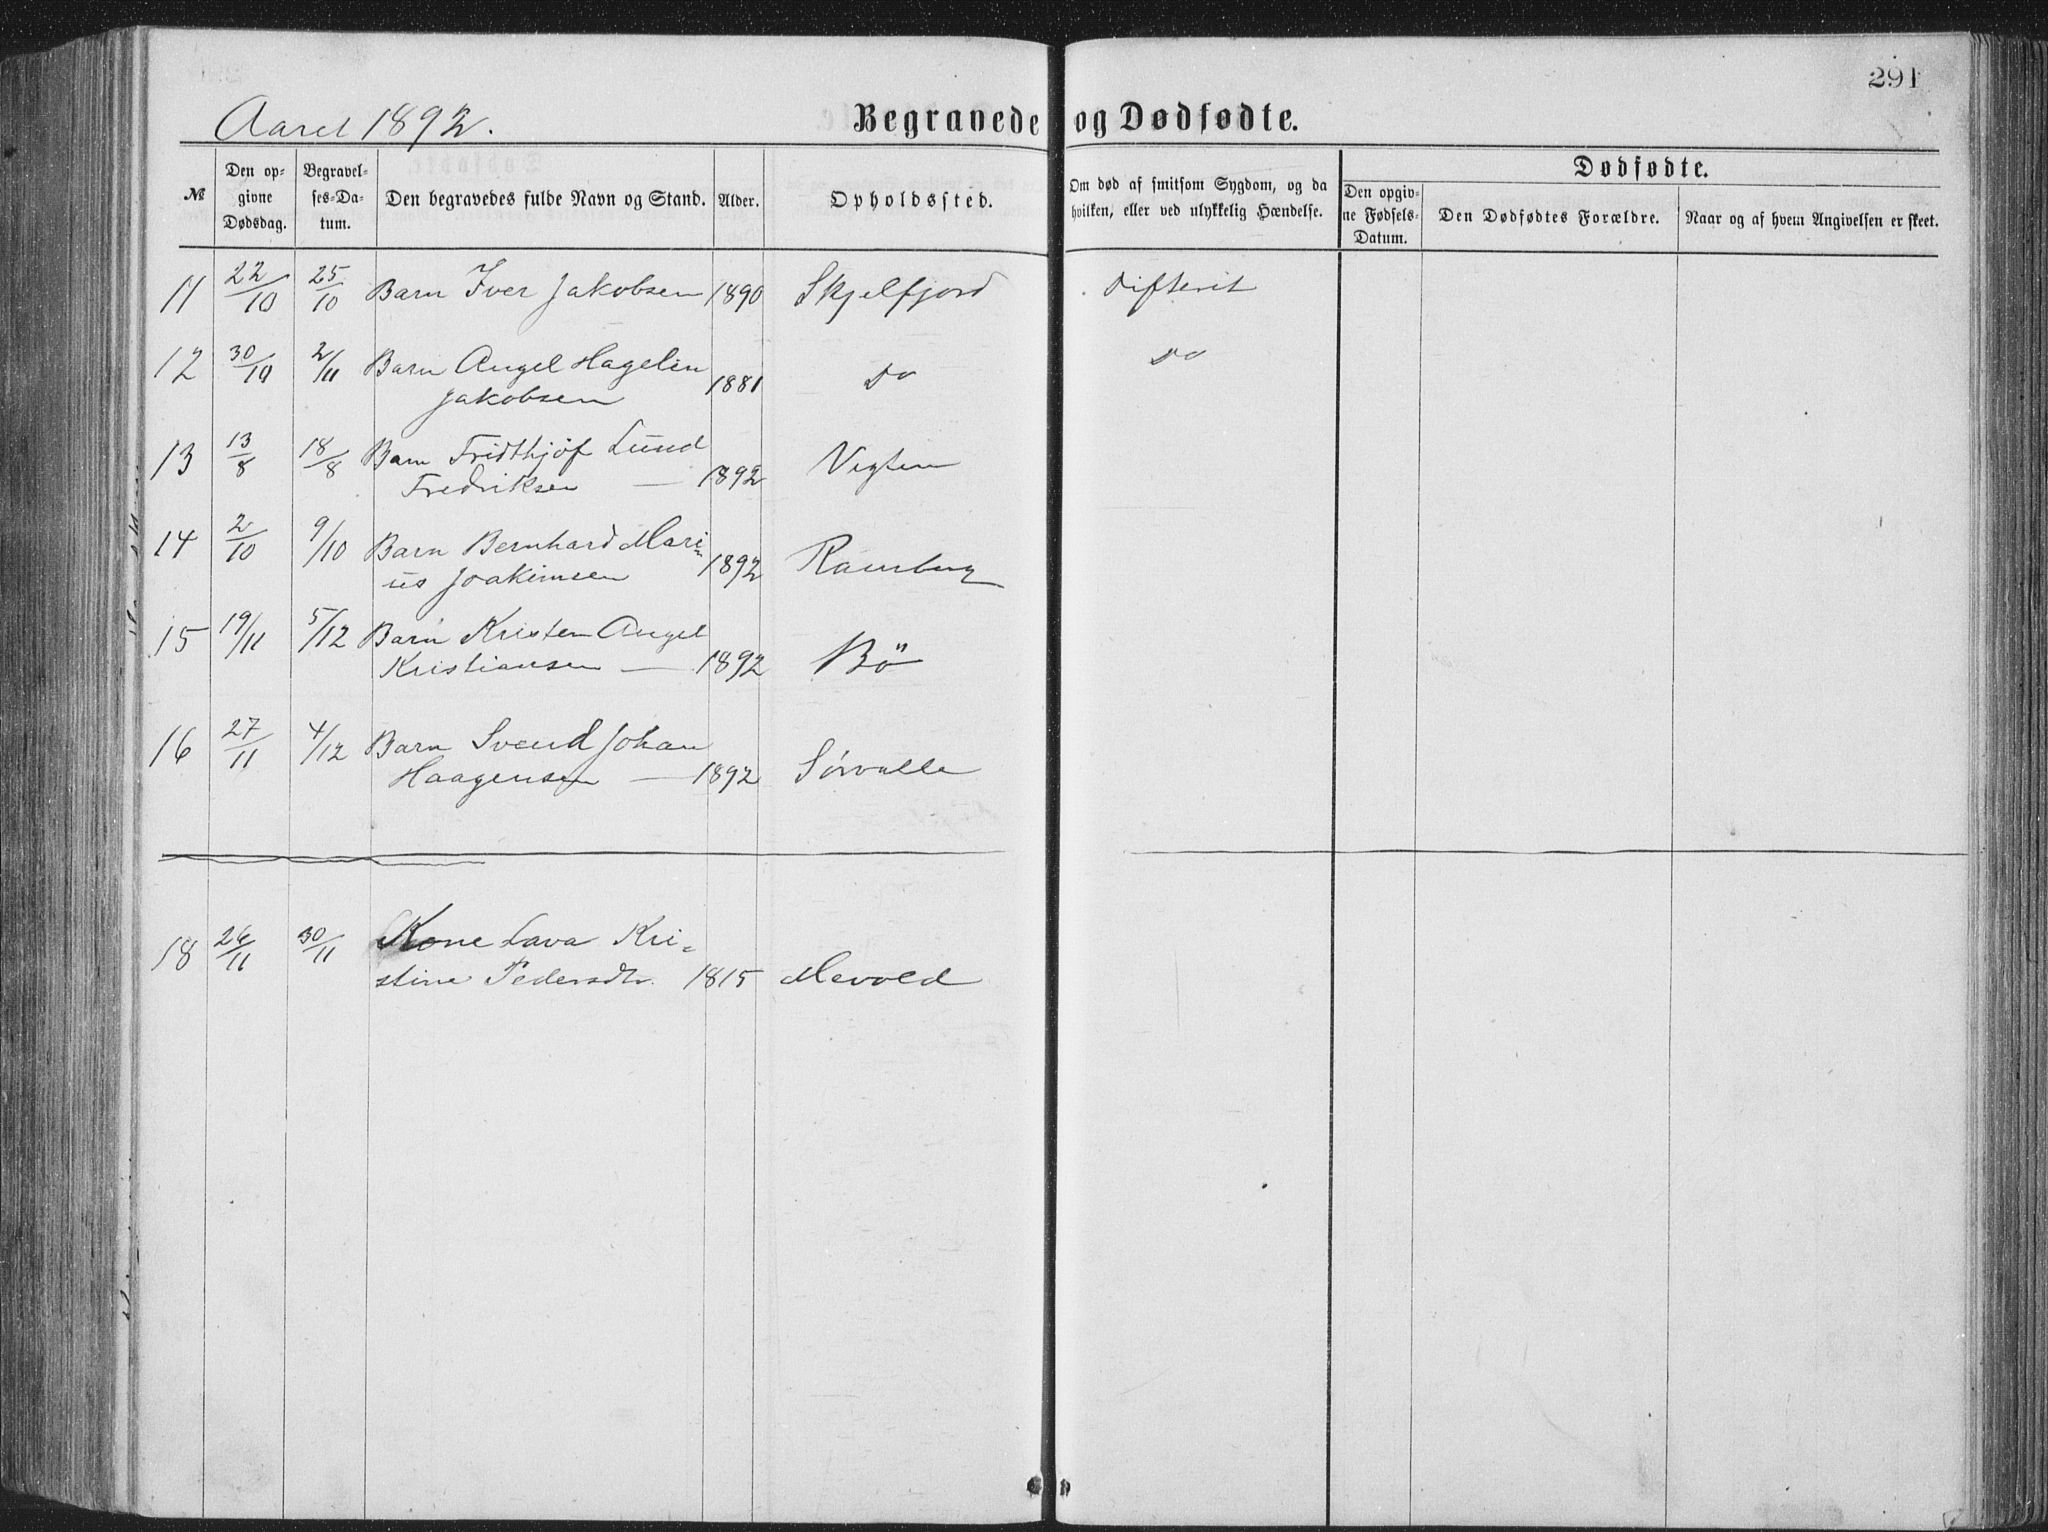 291
Aaret 1892.
Begravede og Dødfødte.
№
Den op-
givne
Dødsdag.
Begravel-
ses-Da-
tum.
Den begravedes fulde Navn og Stand.
Alder.
Opholdssted.
Om død af smitsom Sygdom, og da
hvilken, eller ved ulykkelig Hændelse.
Dødfødte.
Den opgiv-
ne Fødsels-
Datum.
Den Dødfødtes Forældre.
Naar og af hvem Angivelsen er skeet.
11 22/10 25/10 Barn Iver Jakobsen 1890 Skjelfjord Difterit
12 30/10 2/11 Barn Angel Hagelin
Jakobsen 1881 Do Do
13 13/8 18/8 Barn Fridthjöf Lund
Fredriksen — 1892 Vigten
14 2/10 9/10 Barn Bernhard Mari=
us Joakimsen 1892 Ramberg
15 19/11 5/12 Barn Kristen Angel
Kristiansen — 1892 Bö
16 27/11 4/12 Barn Svend Johan
Haagensen — 1892
18 26/11 30/11 Kone Lava Kri=
stine Pedersdtr. 1815 Mevold